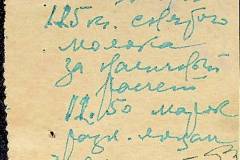 125 кг. снятого
молока
за наличный
расчет
12.50 марок